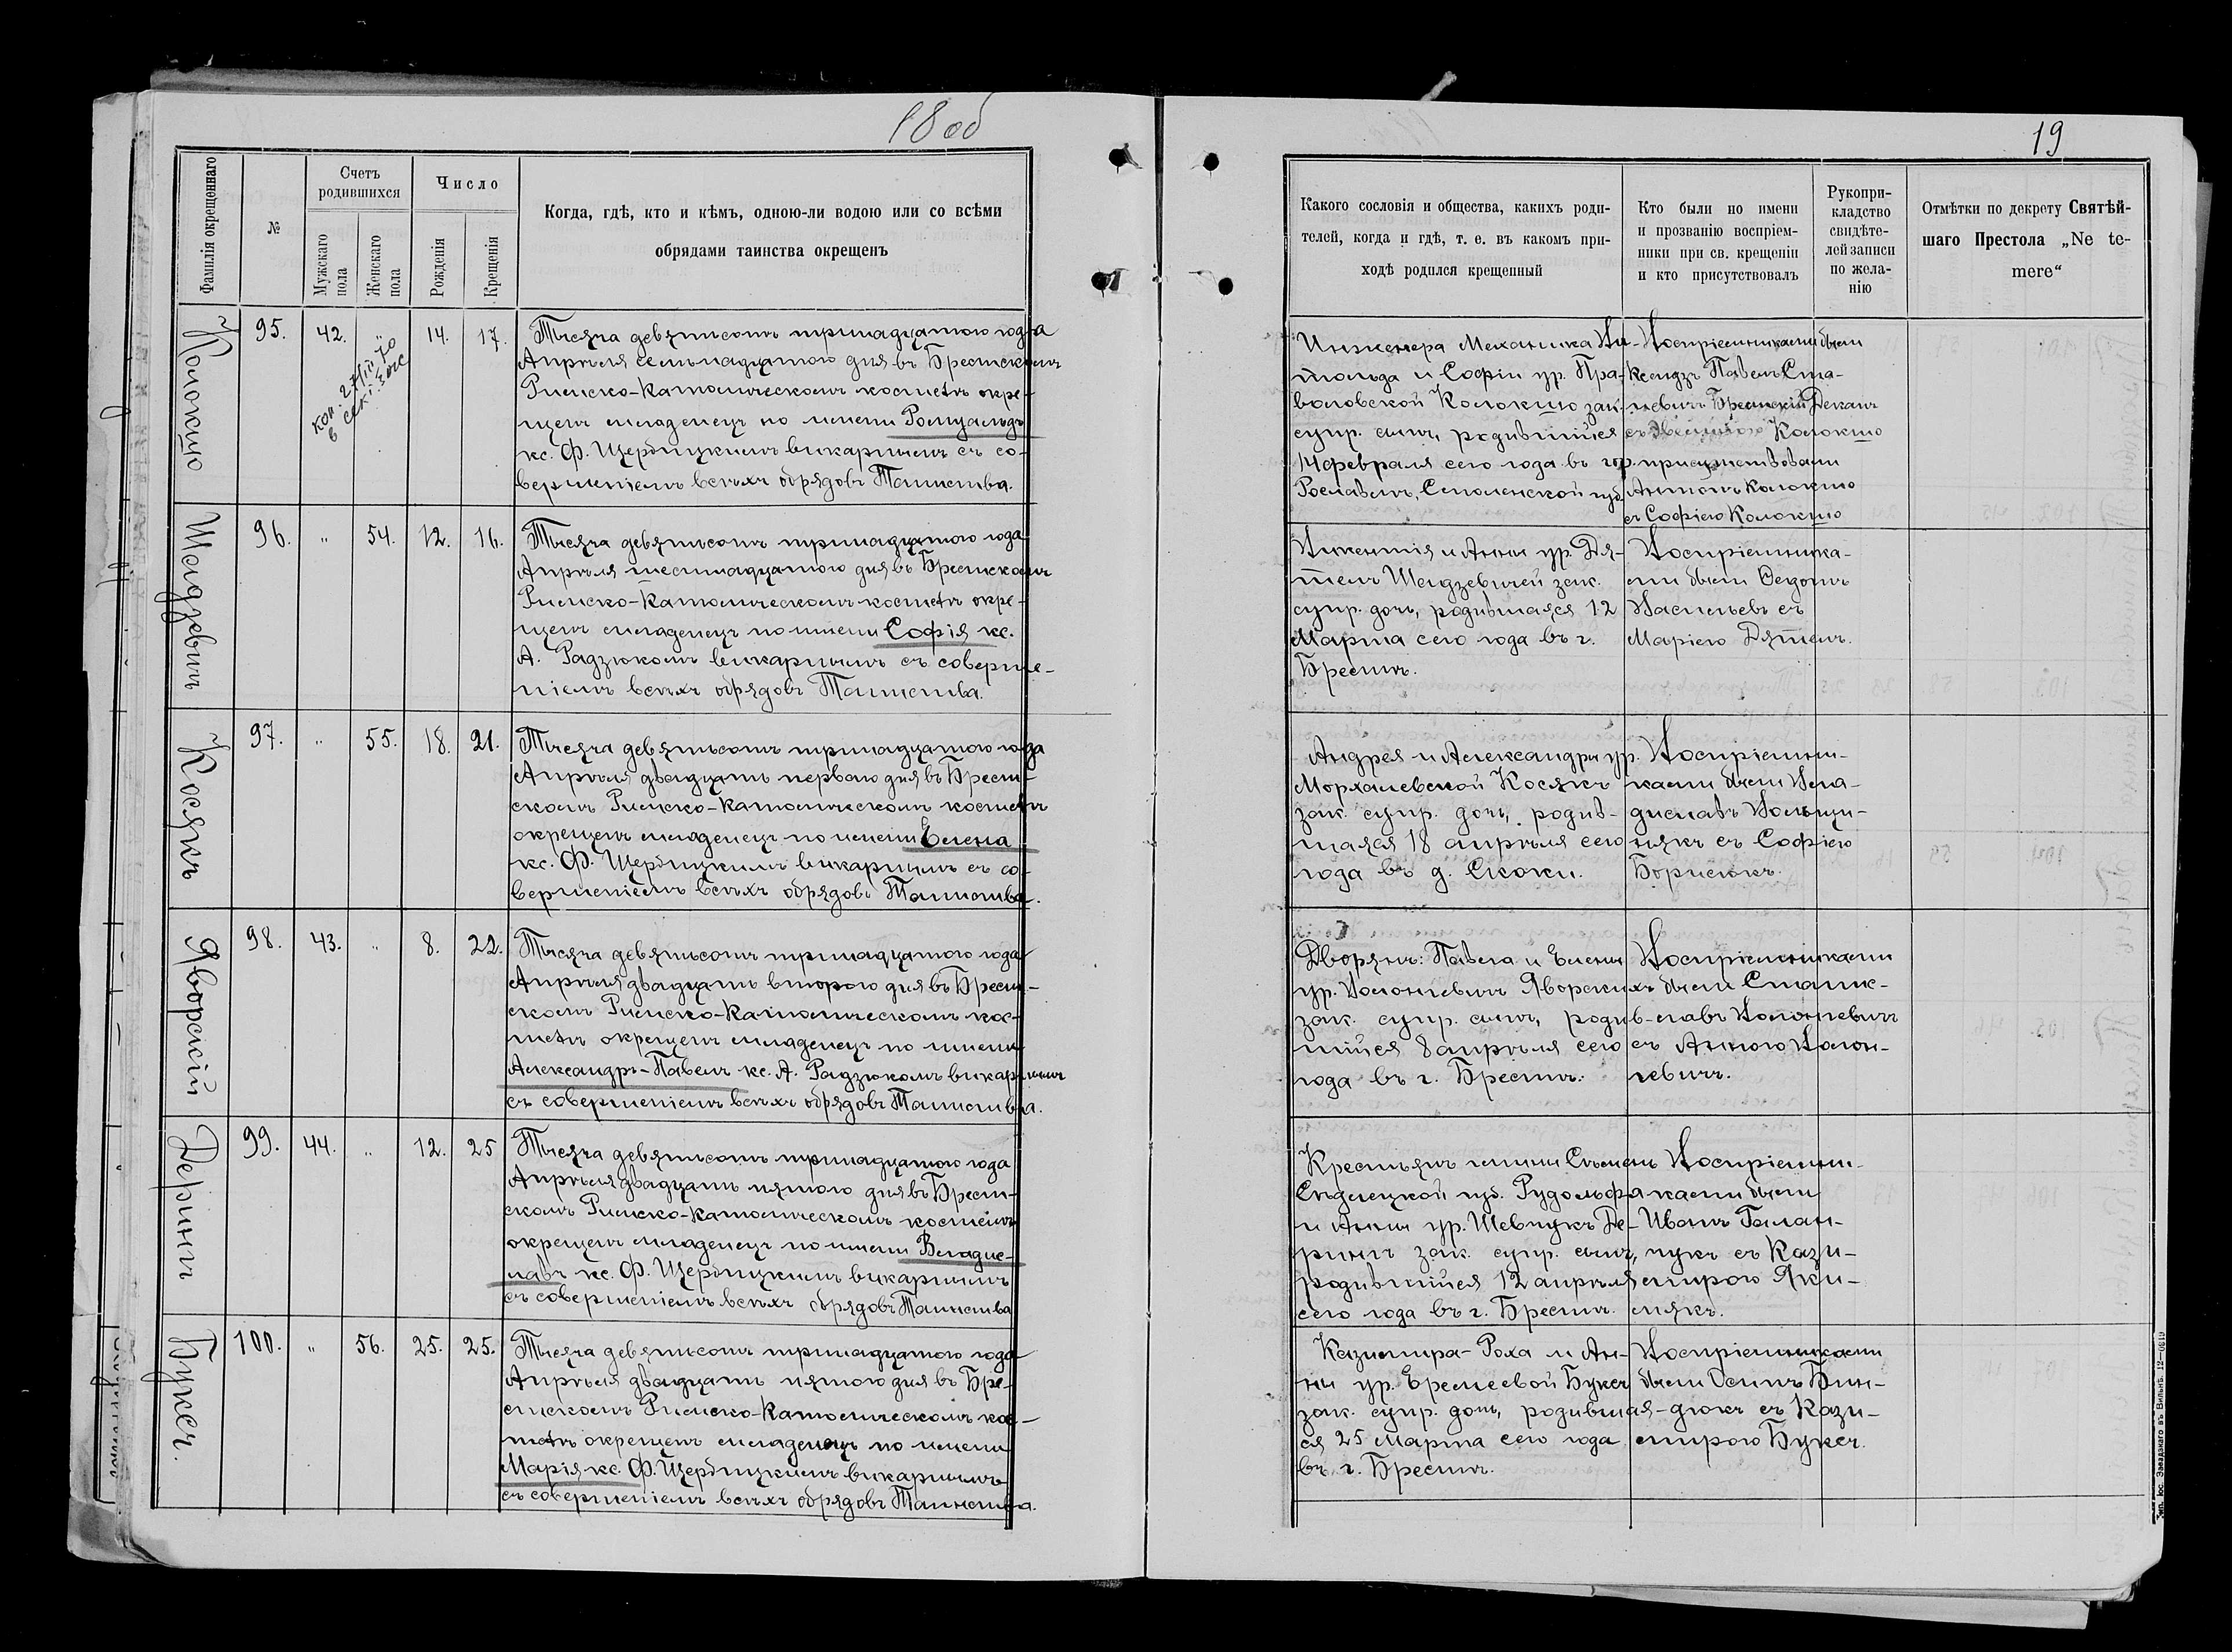 18 об
Фамилія окрещеннаго
№
Счетъ
родившихся
Мужскаго
пола
Женскаго
пола
Число
Рожденія
Крещенія
Когда, гдѣ, кто и кѣмъ, одною-ли водою или со всѣми
обрядами таинства окрещенъ
Колокшо
95. 42. „ 14. 17.
Тысяча девятьсотъ тринадцатого года
Апрѣля семнадцатого дня въ Брестскомъ
Римско-Католическомъ костелѣ окре-
щенъ младенецъ по имени Ромуальдъ
кс. Ф. Щербицкимъ викарнымъ съ со-
вершеніемъ всѣхъ обрядовъ Таинства.
Шедзевичъ
96. „ 54. 12. 16.
Тысяча девятьсотъ тринадцатого года
Апрѣля шестнадцатого дня въ Брестскомъ
Римско-Католическомъ костелѣ окре-
щенъ младенецъ по имени Софія кс.
А. Радзюкомъ викарнымъ съ соверше-
ніемъ всѣхъ обрядовъ Таинства.
Косякъ
97. „ 55. 18. 21.
Тысяча девятьсотъ тринадцатого года
Апрѣля двадцать первого дня въ Брест-
скомъ Римско-Католическомъ костелѣ
окрещенъ младенецъ по имени Елена
кс. Ф. Щербицкимъ викарнымъ съ со-
вершеніемъ всѣхъ обрядовъ Таинства.
Яворскій
98. 43. „ 8. 22.
Тысяча девятьсотъ тринадцатого года
Апрѣля двадцать второго дня въ Брест-
скомъ Римско-Католическомъ кос-
телѣ окрещенъ младенецъ по имени
Александръ-Павелъ кс. А. Радзюкомъ викарнымъ
съ совершеніемъ всѣхъ обрядовъ Таинства.
Дерингъ
99. 44. „ 12. 25
Тысяча девятьсотъ тринадцатого года
Апрѣля двадцать пятого дня въ Брест-
скомъ Римско-Католическомъ костелѣ
окрещенъ младенецъ по имени Владис-
лавъ кс. Ф. Щербицкимъ викарнымъ
съ совершеніемъ всѣхъ обрядовъ Таинства
Букса.
100. „ 56. 25. 25.
Тысяча девятьсотъ тринадцатого года
Апрѣля двадцать пятого дня въ Бре-
стскомъ Римско-Католическомъ кос-
телѣ окрещенъ младенецъ по имени
Марія кс. Ф. Щербицкимъ викарнымъ
съ совершеніемъ всѣхъ обрядовъ Таинства.
19
Какого сословія и общества, какихъ роди-
телей, когда и гдѣ, т. е. въ какомъ при-
ходѣ родился крещенный
Кто были по имени
и прозванію воспріем-
ники при св. крещеніи
и кто присутствовалъ
Рукопри-
кладство
свидѣте-
лей записи
по жела-
нію
Отмѣтки по декрету Святѣй-
шаго Престола „Ne te-
mere“
Инженера Механика Ви-
тольда и Софіи ур. Пра-
воловской Колокшо зак.
супр. сынъ, родившійся
14 февраля сего года въ гор.
Рославлѣ, Смоленской губ.
Воспріемниками были
Ксендзъ Павелъ Ста-
невичъ Брестскій Деканъ
Колокшо
присутствовали
Антонъ Колокшо
съ Софіею Колокшо
Викентія и Анны ур. Дя-
телъ Шедзевичей зак.
супр. дочь, родившаяся 12
Марта сего года въ г.
Брестѣ.
Воспріемника-
ми были Федоръ
Васильевъ съ
Маріею Дятелъ.
Андрея и Александры ур.
Морхалевской Косякъ
зак. супр. дочь, родив-
шаяся 18 апрѣля сего
года въ д. Скоки.
Воспріемни-
ками были Вла-
диславъ Вольщи-
някъ съ Софіею
Борисюкъ.
Дворянъ: Павла и Елены
ур. Волончевичъ Яворскихъ
зак. супр. сынъ, родив-
шійся 8 апрѣля сего
года въ г. Брестѣ.
Воспріемниками
были Станис-
лавъ Волончевичъ
съ Анною Волон-
чевичъ.
Сѣдлецкой губ. Рудольфа
и Анны ур. Шевчукъ Де-
рингъ зак. супр. сынъ,
родившійся 12 апрѣля
сего года въ г. Брестѣ.
Воспріемни-
ками были
Иванъ Галан-
чукъ съ Кази-
мирою Яки-
мякъ.
Казимира-Роха и Ан-
ны ур. Еремеевой Букса
зак. супр. дочь, родившая-
ся 25 Марта сего года
въ г. Брестѣ.
Воспріемниками
были Осипъ Бин-
дюкъ съ Кази-
мирою Букса.
Тип. Іос. Завадзкаго въ Вильнѣ.